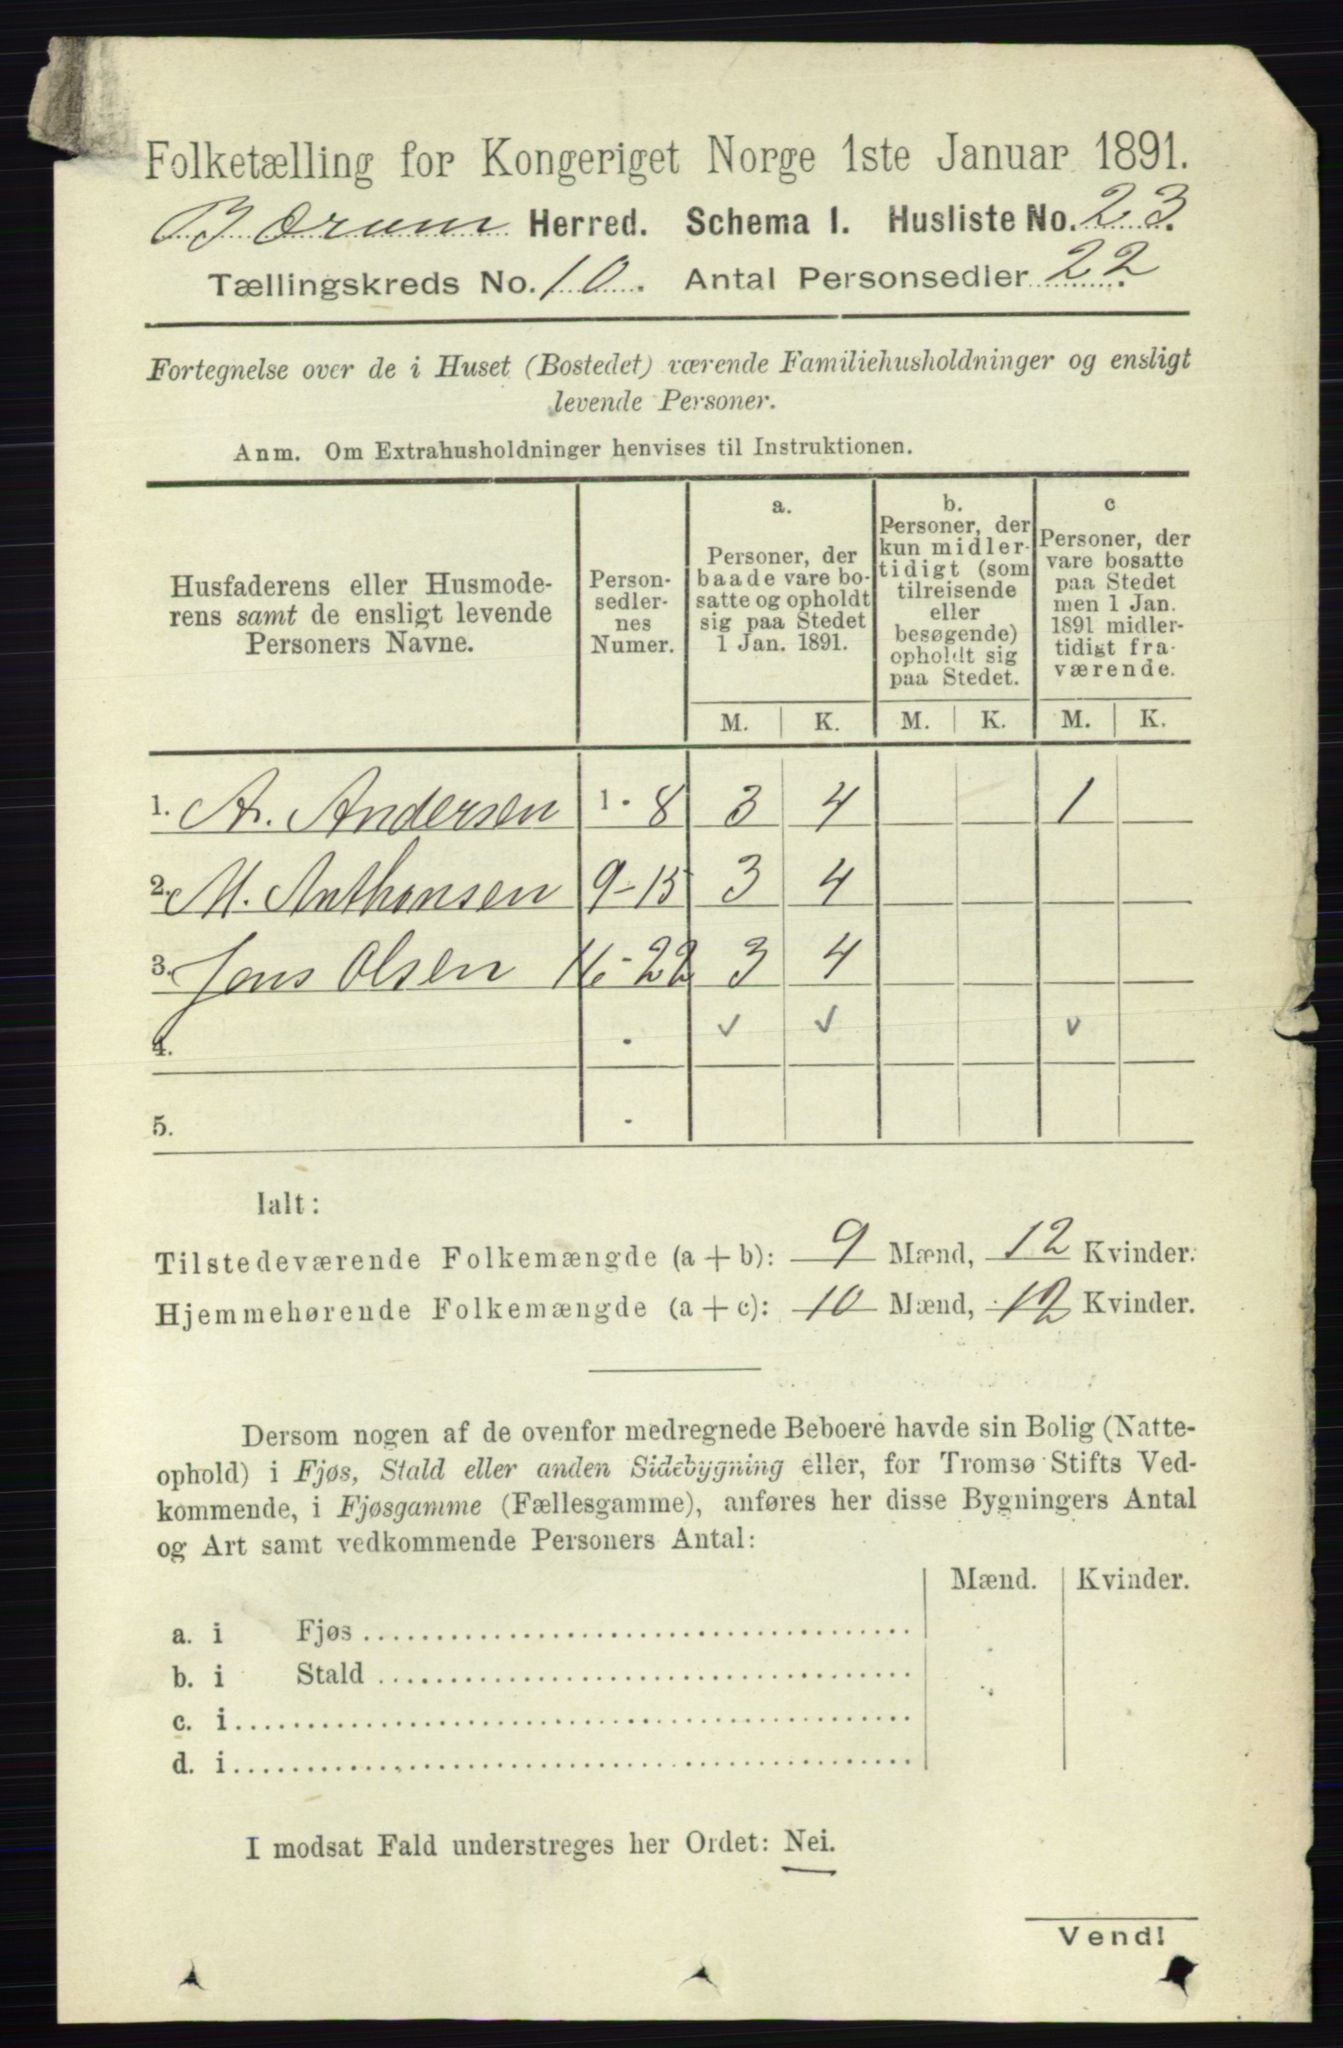 Folketælling for Kongeriget Norge 1ste Januar 1891.
Bærum Herred. Schema I. Husliste No. 23.
Tællingskreds No. 10. Antal Personsedler 22.
Fortegnelse over de i Huset (Bostedet) værende Familiehusholdninger og ensligt
levende Personer.
Anm. Om Extrahusholdninger henvises til Instruktionen.
Husfaderens eller Husmode-
rens samt de ensligt levende
Personers Navne.
Person-
sedler-
nes
Numer.
a.
Personer, der
baade vare bo-
satte og opholdt
sig paa Stedet
1 Jan. 1891.
b.
Personer, der
kun midler-
tidigt (som
tilreisende
eller
besøgende)
opholdt sig
paa Stedet.
c
Personer, der
vare bosatte
paa Stedet
men 1 Jan.
1891 midler-
tidigt fra-
værende.
M. K. M. K. M. K.
1. A. Andersen 1 - 8 3 4 1
2. M. Anthonsen 9-15 3 4
3. Jens Olsen 16-22 3 4
4. - ✓ ✓ ✓
5. -
Ialt:
Tilstedeværende Folkemængde (a + b): 9 Mænd, 12 Kvinder.
Hjemmehørende Folkemængde (a + c): 10 Mænd, 12 Kvinder.
Dersom nogen af de ovenfor medregnede Beboere havde sin Bolig (Natte-
ophold) i Fjøs, Stald eller anden Sidebygning eller, for Tromsø Stifts Ved-
kommende, i Fjøsgamme (Fællesgamme), anføres her disse Bygningers Antal
og Art samt vedkommende Personers Antal:
Mænd. Kvinder.
a. i Fjøs
b. i Stald
c. i
d. i
I modsat Fald understreges her Ordet: Nei.
Vend!